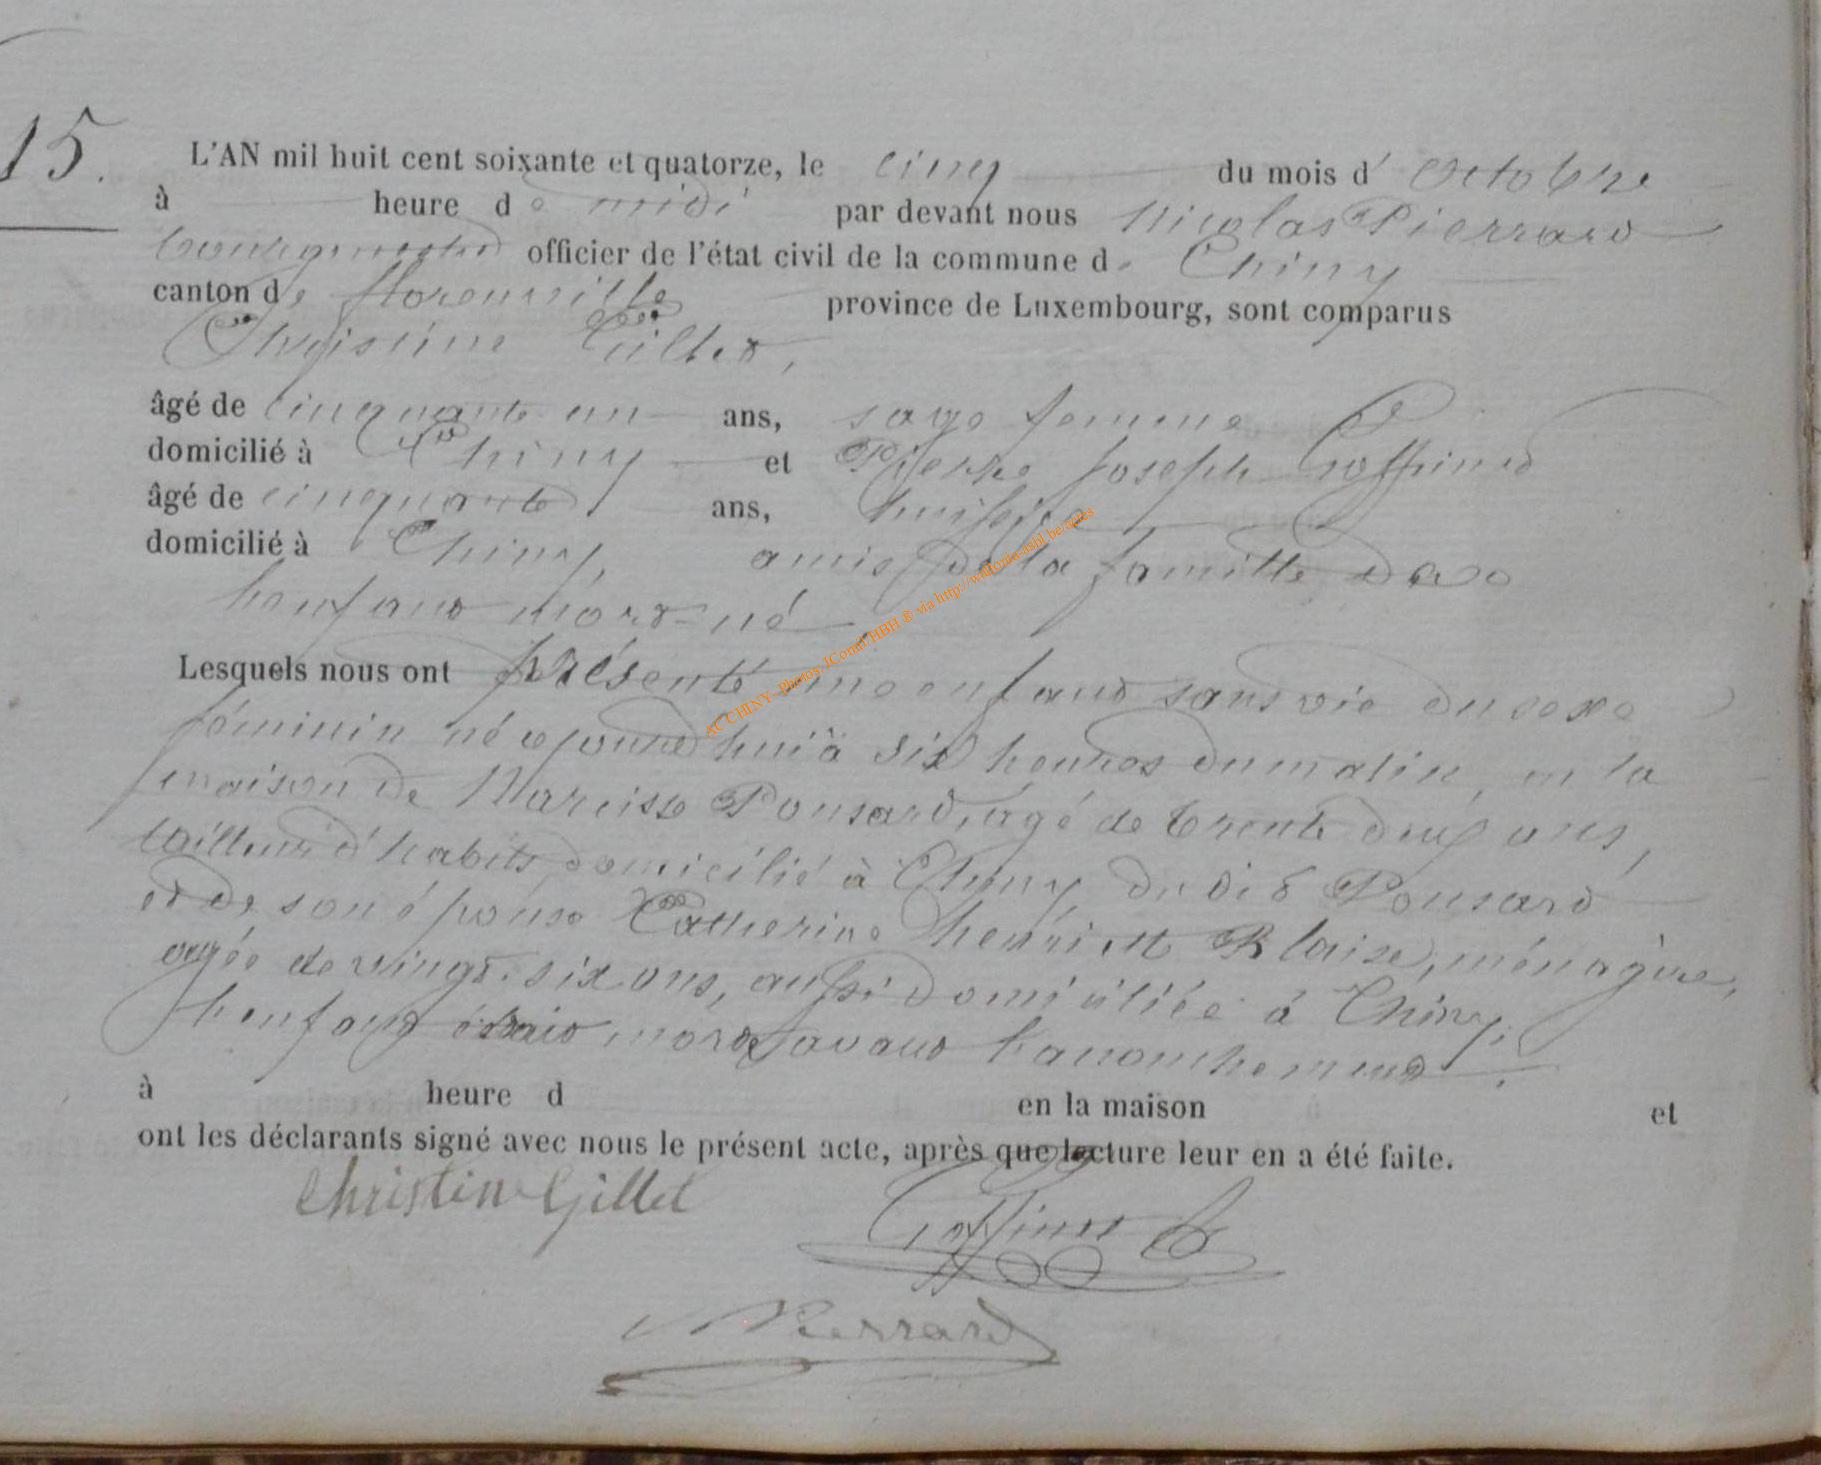 15.
L'AN mil huit cent soixante et quatorze, le cinq du mois d'octobre
à heure de midi par devant nous Nicolas Pierrard
bourgmestre officier de l'état civil de la commune de Chiny
canton de florenville province de Luxembourg, sont comparus
Christine Gillet,
âgé de cinquante un ans, sage femme
domicilié à Chiny et Pierre Joseph Goffinet
âgé de cinquante ans, huissier
domicilié à Chiny, amis de la famille de
l'enfant mort-né
Lesquels nous ont présenté un enfant sans vie du sexe
féminin né aujourd'hui à six heures du matin, en la
maison de Narcisse Ponsard, agé de trente deux ans,
tailleur d'habits domicilié à Chiny, du dit Ponsard
et de son épouse Catherine henriette Blaise, ménagère,
agée de vingt-six ans, aussi domiciliée à Chiny,
l'enfant était mort avant l'accouchement.
à heure d en la maison et
ont les déclarants signé avec nous le présent acte, après que lecture leur en a été faite.
Christin Gillet
Goffinet
Pierrard
AC CHINY - Photos JComil HBH ® via http://wallonia-asbl.be actes